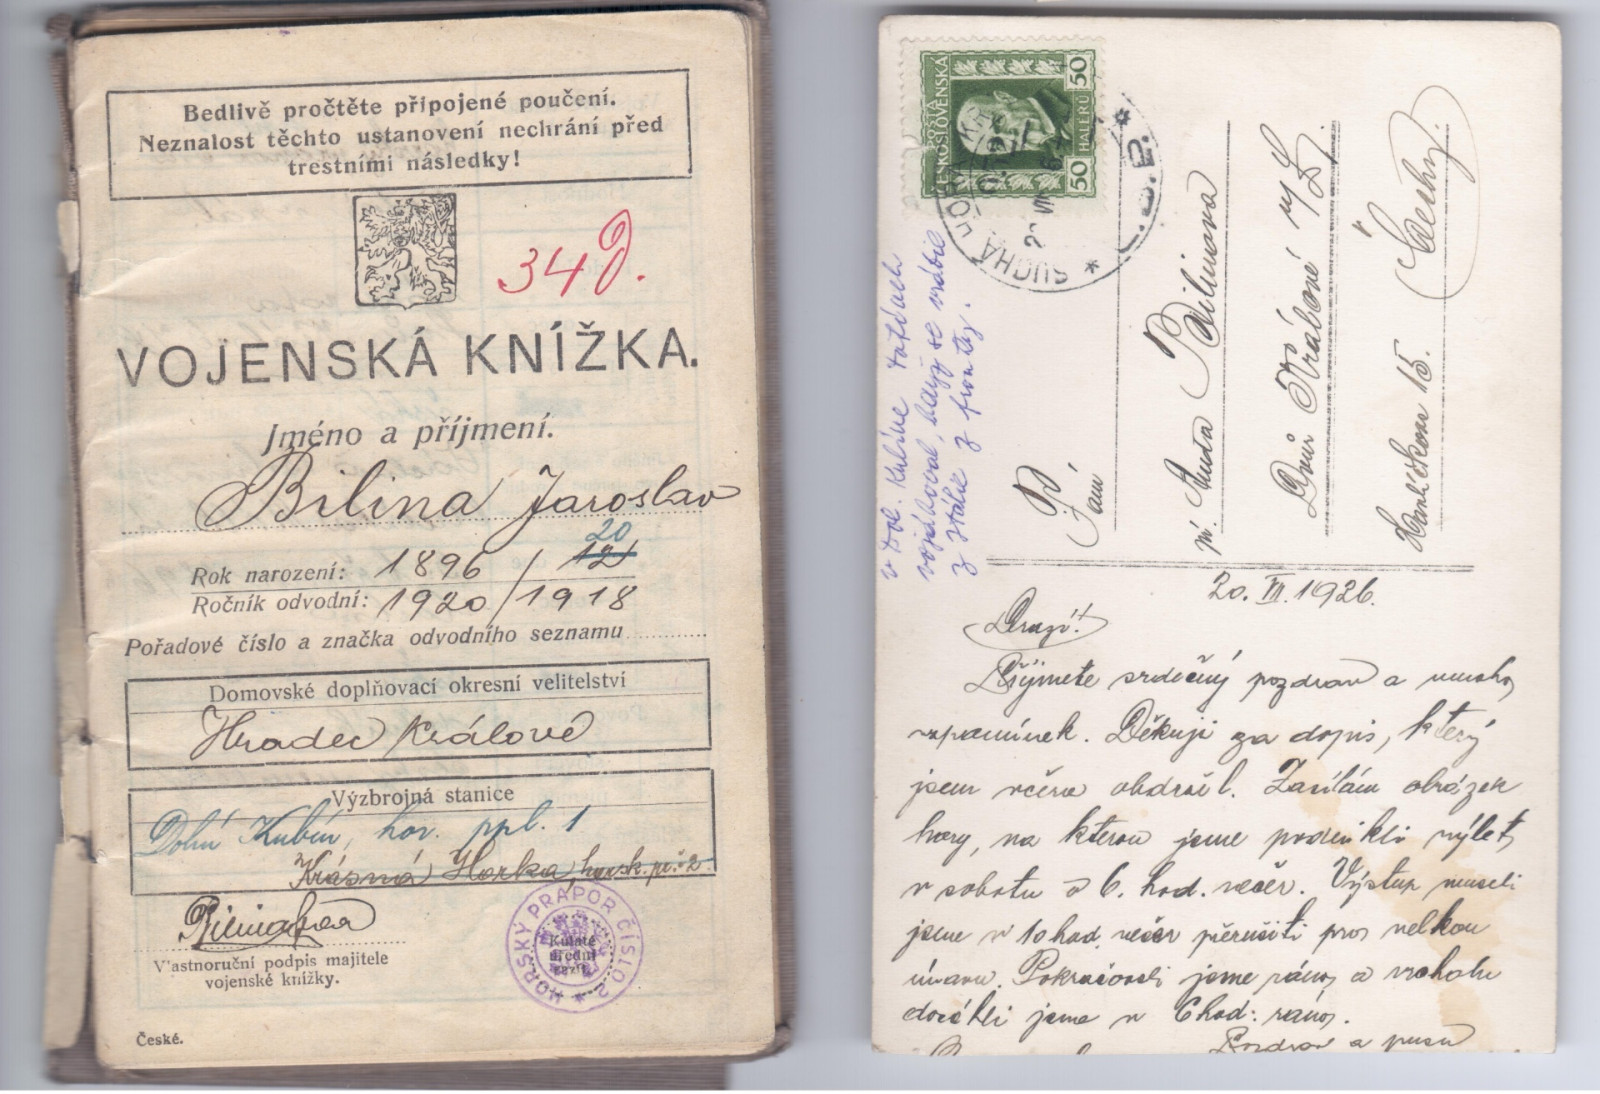 Bedlivě pročtěte připojené poučení.
Neznalost těchto ustanovení nechrání před
trestními následky!
34
VOJENSKÁ KNÍŽKA.
Jméno a příjmení.
Bilina Jaroslav
20
Rok narození: 1896 / 12
Ročník odvodní: 1920/1918
Pořadové číslo a značka odvodního seznamu
Domovské doplňovací okresní velitelství
Hradec Králové
Výzbrojná stanice
Dolní Kubín, hor. ppl. 1
Krásná Horka horsk. pr. 2
Vlastnoruční podpis majitele
vojenské knížky.
HORSKÝ PRAPOR ČÍSLO 2
Kulaté
úřední
České.
ČESKOSLOVENSKÁ
50 HALÉŘŮ 50
SUCHÁ HORA
v Dol. Kubíne
vojákoval, když se vrátil
z Itálie z fronty.
Pan
Bilinova
Dvůr Králové n/L.
Havlíčkova 15.
Čechy.
20. VII. 1926.
Drazí!
Přijmete srdečný pozdrav a mnoho
vzpomínek. Děkuji za dopis, který
jsem včera obdržel. Zasílám obrázek
hory, na kterou jsme podnikli výlet
v sobotu o 6. hod. večer. Výstup museli
jsme v 10 hod. večer přerušiti pro velkou
únavu. Pokračovali jsme ráno a vrcholu
docílili jsme v 6 hod: ráno.
Pozdrav a pusu